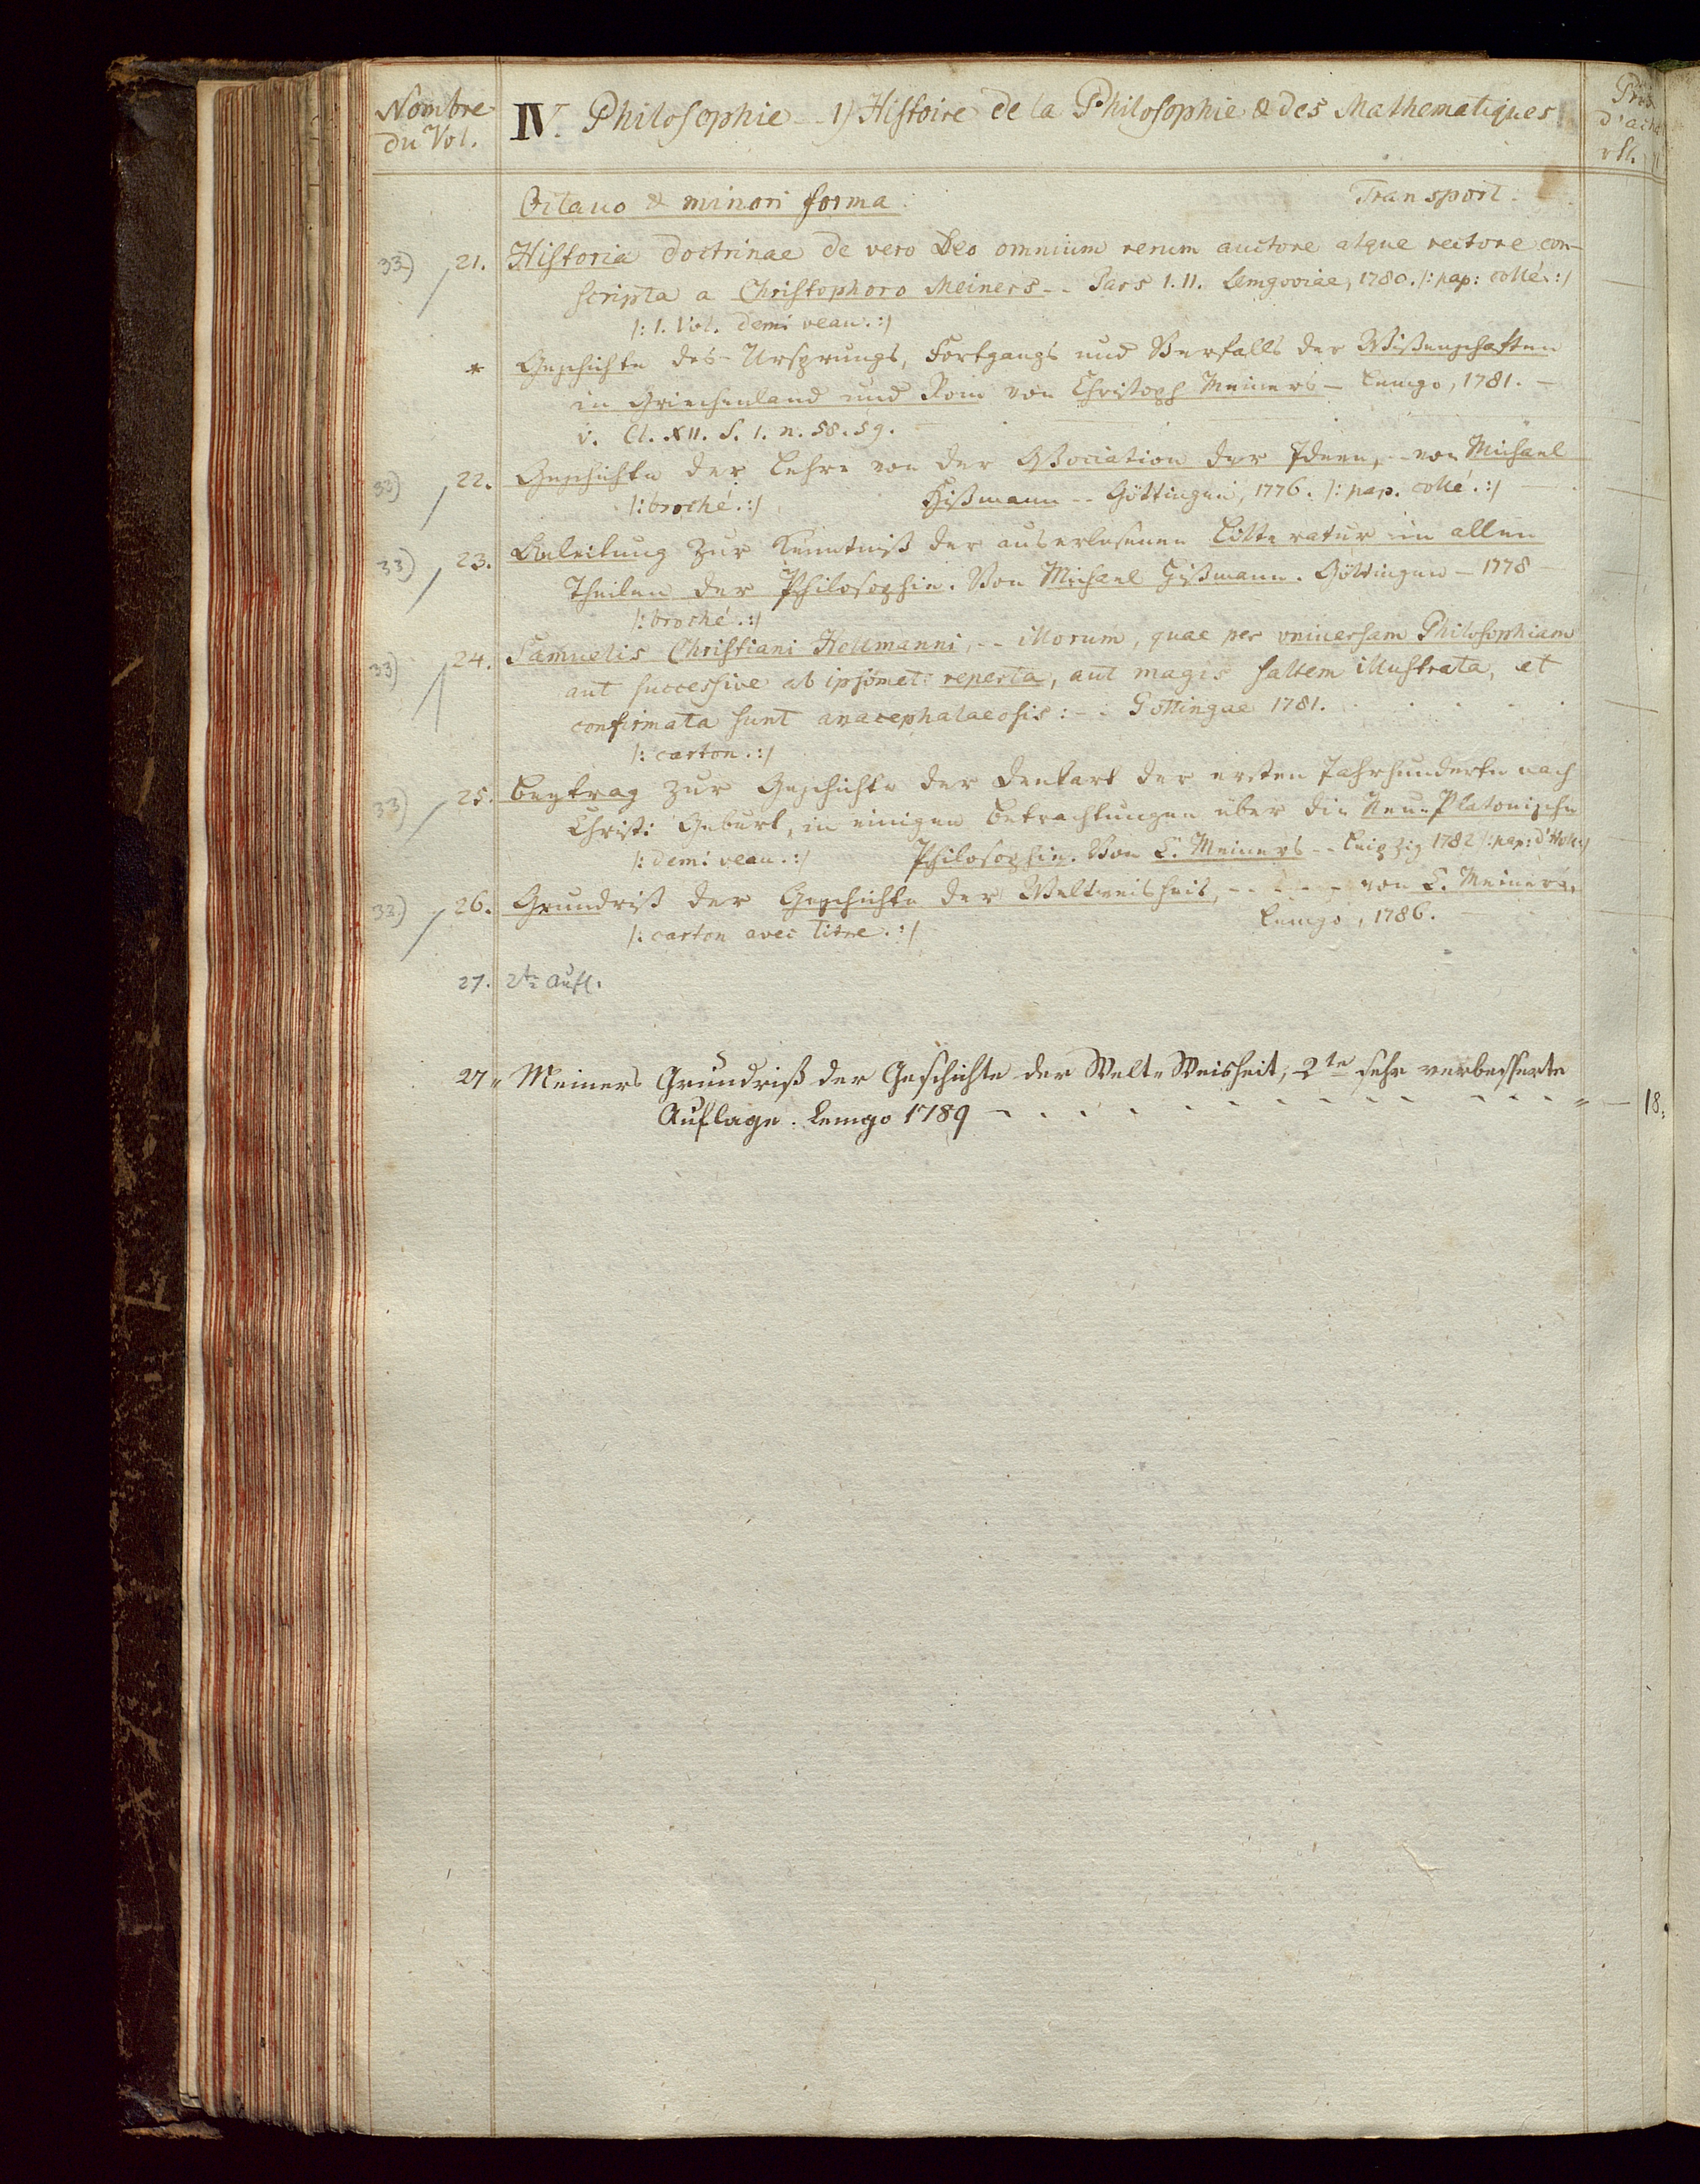 Nombre
du Vol.
IV. Philosophie -- 1) Histoire de la Philosophie & des Mathematiques
Prix
d'acha
rtl.
Octavo & minori forma.
Transport.
33) 21. Historia doctrinae de vero Deo omnium rerum auctore atque rectore con-
scripta a Christophoro Meiners -- Pars I. II. Lemgoviae, 1780. /: pap: collé. :/
/: 1. Vol. demi veau. :/
* Geschichte des Ursprungs, Fortgangs und Verfalls der Wißenschaften
in Griechenland und Rom von Christoph Meiners - Lemgo, 1781. -
v. Cl. XII. S. 1. n. 58. 59.
33) 22. Geschichte der Lehre von der Aßociation der Ideen, -- von Michael
Hißmann -- Göttingen, 1776. /: pap. collé. :/
/: broché. :/
33) 23. Anleitung zur Kenntniß der auserlesenen Litteratur in allen
Theilen der Philosophie. Von Michael Hißmann. Göttingen - 1778 -
/: broché. :/
33) 24. Samuelis Christiani Hollmanni, -- illorum, quae per vniuersam Philosophiam
aut successive ab ipsomet reperta, aut magis saltem illustrata, et
confirmata sunt anacephalaeosis: -- Gottingae 1781.
/: carton. :/
33) 25. Beytrag zur Geschichte der Denkart der ersten Jahrhunderte nach
Christi Geburt, in einigen Betrachtungen über die Neu-Platonische
Philosophie. Von C. Meiners -- Leipzig 1782 /: pap: d'Holl: :/
/: demi veau. :/
33) 26. Grundriß der Geschichte der Weltweisheit, - - - - von C. Meiners.
Lemgo, 1786.
/: carton avec titre. :/
27. 2te Aufl.
27 " Meiners Grundriß der Geschichte der Welt-Weisheit, 2te sehr verbesserte
Auflage. Lemgo 1789 - - - - - - - - - - - - " — 18.